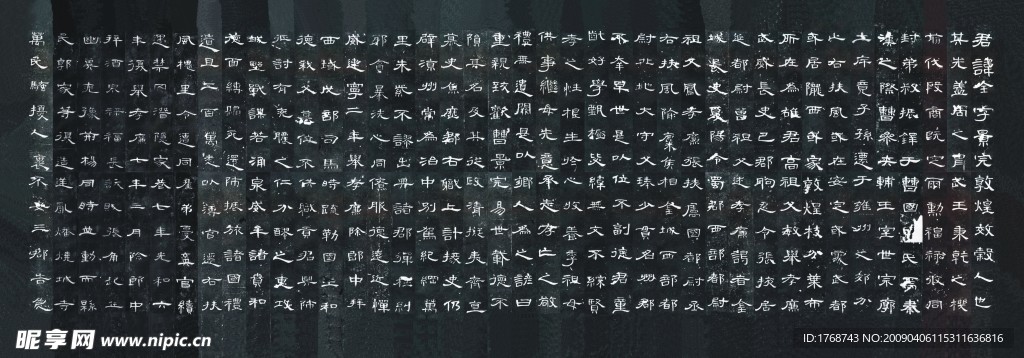 君諱全字景完敦煌效穀人也
其先蓋周之胄武王秉乾之機
翦伐殷商既定爾勳福祿攸同
封弟叔振鐸于曹國因氏焉秦
漢之際曹參夾輔王室世宗廓
土斥竟子孫遷于雍州之郊分
止右扶風或在安定或處武都
或居隴西或家敦煌枝分葉布
所在為雄君高祖父敏舉孝廉
武威長史巴郡朐忍令張掖居
延都尉曾祖父述孝廉謁者金
城長史夏陽令蜀郡西部都尉
祖父鳳孝廉張掖屬國都尉丞
右扶風隃麋侯相金城西部都
尉北地大守父琫少貫名州郡
不幸早世是以位不副德君童
齔好學甄極毖緯無文不綜賢
孝之性根生於心收養季祖母
供事繼母先意承志存亡之敬
禮無遺闕是以鄉人為之諺曰
重親致歡曹景完易世載德不
隕其名及其從政清擬夷齊直
慕史魚歷郡右職上計掾史仍
辟涼州常為治中別駕紀綱萬
里朱紫不謬出典諸郡彈枉糾
邪貪暴洗心同僚服德遠近憚
威建寧二年舉孝廉除郎中拜
西域戊部司馬時疏勒國王和
德弒父篡位不供職貢君興師
征討有兗膿之仁分醪之惠攻
城野戰謀若涌泉威牟諸賁和
德面縛歸死還師振旅諸國禮
遺且二百萬悉以簿官遷右扶
風槐里令遭同產弟憂棄官續
遇禁罔潛隱家巷七年光和六
年復舉孝廉七年三月除郎中
拜酒泉祿福長訞賊張角起兵
幽冀兗豫荊楊同時並動而縣
民郭家等復造逆亂燔燒城寺
萬民騷擾人裹不安三郡告急
昵享网 www.nipic.cn
ID:1768743 NO:20090406115311636816